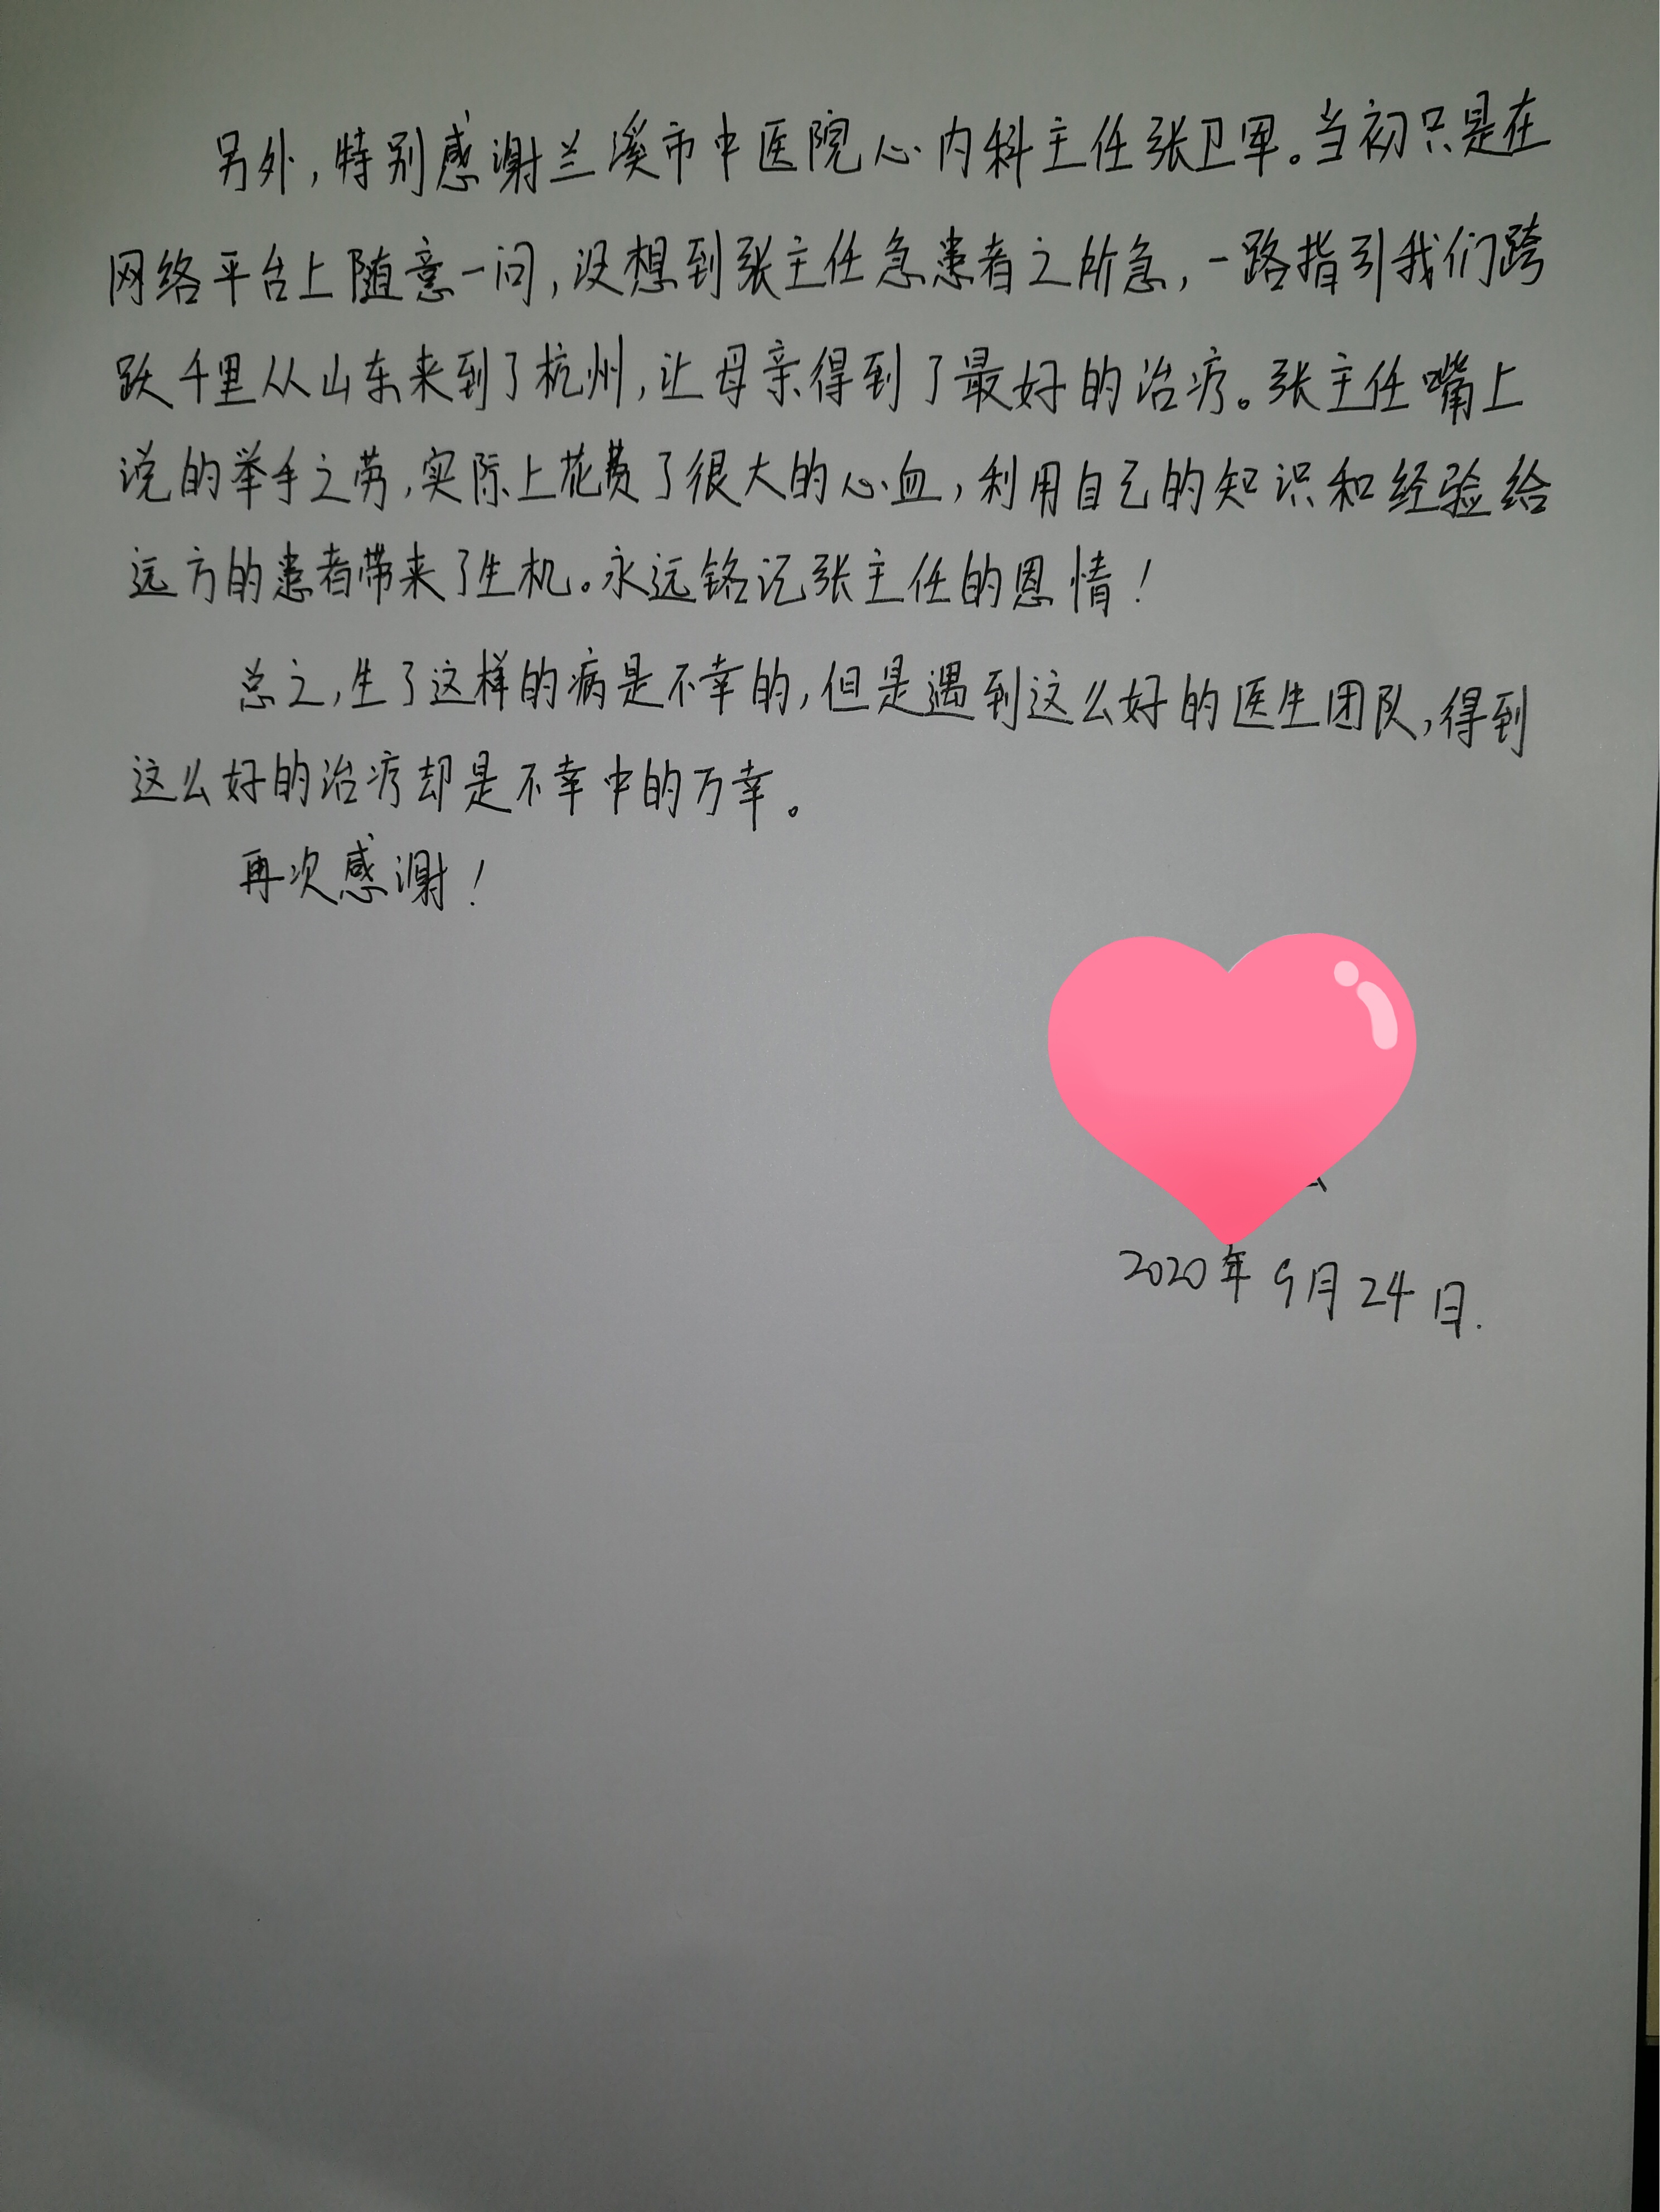 另外,特别感谢兰溪市中医院心内科主任张卫军。当初只是在
网络平台上随意一问,没想到张主任急患者之所急,一路指引我们跨
跃千里从山东来到了杭州,让母亲得到了最好的治疗。张主任嘴上
说的举手之劳,实际上花费了很大的心血,利用自己的知识和经验给
远方的患者带来了生机。永远铭记张主任的恩情!
总之,生了这样的病是不幸的,但是遇到这么好的医生团队,得到
这么好的治疗却是不幸中的万幸。
再次感谢!
2020年9月24日.